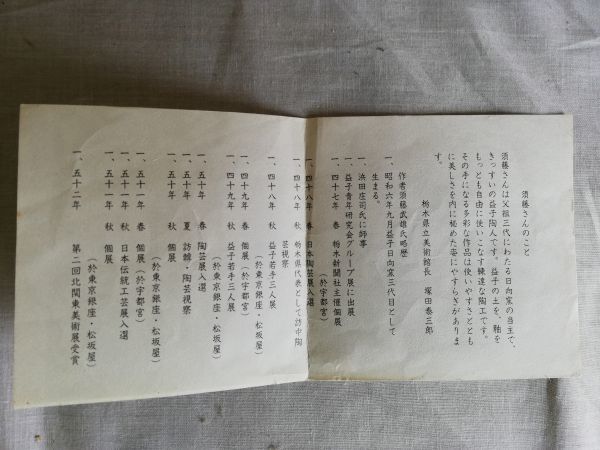 須藤さんのこと
須藤さんは父祖三代にわたる日向窯の当主で、
きっすいの益子陶人です。益子の土を、釉を
もっとも自由に使いこなす練達な陶工です。
その手になる多彩な作品は使いやすさととも
に美しさを内に秘めた姿にやすらぎがありま
す。
栃木県立美術館長 塚田泰三郎
作者須藤武雄氏略歴
一、昭和六年九月益子日向窯三代目として
生まる。
一、浜田庄司氏に師事
一、益子青年研究会グループ展に出展
一、四十七年 春 栃木新聞社主催個展
(於宇都宮)
一、四十八年 春 日本陶芸展入選
一、四十八年 秋 栃木県代表として訪中陶
芸視察
一、四十八年 秋 益子若手三人展
(於東京銀座・松坂屋)
一、四十九年 春 個展(於宇都宮)
一、四十九年 秋 益子若手三人展
(於東京銀座・松坂屋)
一、五十年 春 陶芸展入選
一、五十年 夏 訪韓・陶芸視察
一、五十年 秋 個展
(於東京銀座・松坂屋)
一、五十一年 春 個展(於宇都宮)
一、五十一年 秋 日本伝統工芸展入選
一、五十一年 秋 個展
(於東京銀座・松坂屋)
一、五十二年 第二回北関東美術展受賞